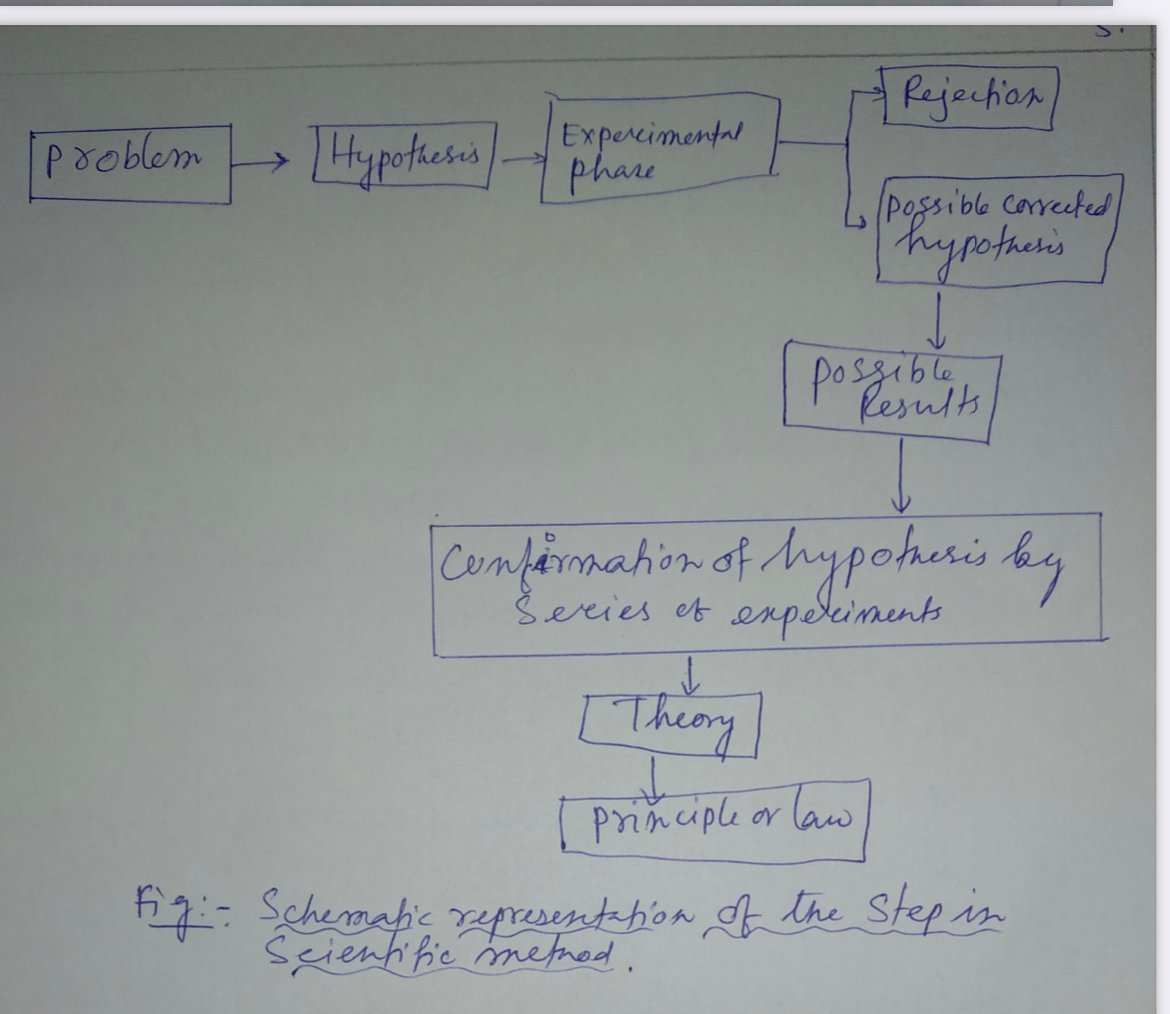 5.
Problem
Hypothesis
Experimental
phase
Rejection
possible corrected
hypothesis
possible
Results
Confirmation of hypothesis by
Series of experiments
Theory
principle or law
Fig:- Schematic representation of the Step in
Scientific method.